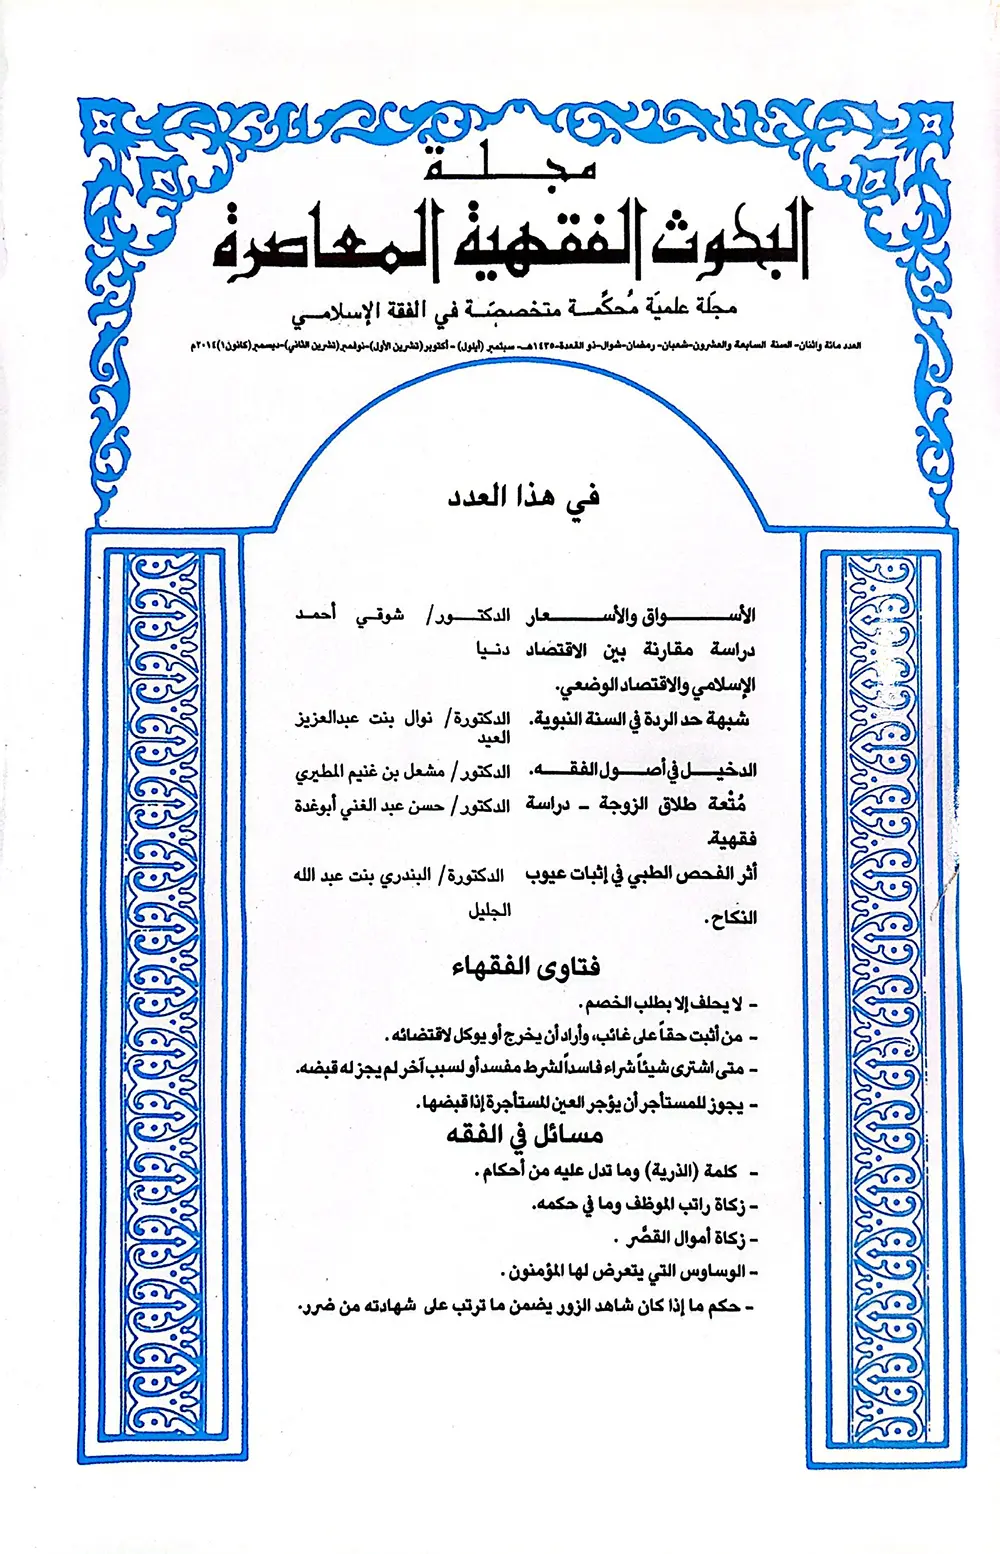 مجلة
البحوث الفقهية المعاصرة
مجلة علميَة مُحكَّمة متخصصَة في الفقة الإسلامي
العدد مائة واثنان- السنة السابعة والعشرون-شعبان- رمضان-شوال-ذو القعدة-١٤٣٥هـ- سبتمبر (أيلول) - أكتوبر(تشرين الأول)-نوفمبر(تشرين الثاني)-ديسمبر(كانون١)٢٠١٤م
في هذا العدد
الأسواق والأسعار الدكتور/ شوقي أحمد
دراسة مقارنة بين الاقتصاد دنيا
الإسلامي والاقتصاد الوضعي.
شبهة حد الردة في السنة النبوية. الدكتورة/ نوال بنت عبدالعزيز
العيد
الدخيل في أصول الفقه. الدكتور/ مشعل بن غنيم المطيري
مُتْعة طلاق الزوجة - دراسة الدكتور/ حسن عبد الغني أبوغدة
فقهية.
أثر الفحص الطبي في إثبات عيوب الدكتورة/ البندري بنت عبد الله
النكاح. الجليل
فتاوى الفقهاء
- لا يحلف إلا بطلب الخصم.
- من أثبت حقاً على غائب، وأراد أن يخرج أو يوكل لاقتضائه.
- متى اشترى شيئاً شراء فاسداً لشرط مفسد أو لسبب آخر لم يجز له قبضه.
- يجوز للمستأجر أن يؤجر العين المستأجرة إذا قبضها.
مسائل في الفقه
- كلمة (الذرية) وما تدل عليه من أحكام.
- زكاة راتب الموظف وما في حكمه.
- زكاة أموال القصَّر .
- الوساوس التي يتعرض لها المؤمنون.
- حكم ما إذا كان شاهد الزور يضمن ما ترتب على شهادته من ضرر.